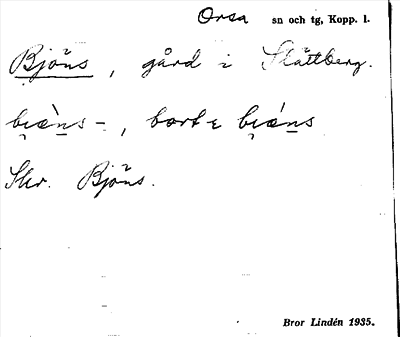 Orsa sn och tg, Kopp. l.
Bjöns, gård i Slättberg.
bi̯æ̀ns -, bort e bi̯ǽns
Skr. Bjöns.
Bror Lindén 1935.